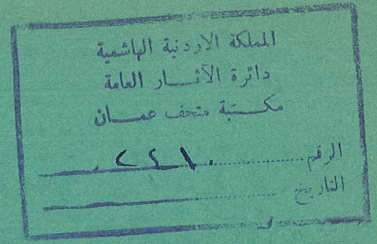 المملكة الاردنية الهاشمية
دائرة الآثـــار العامة
مكـــتبة متحف عمـــان
الرقم ........ ٢٢٨٠
التاريخ